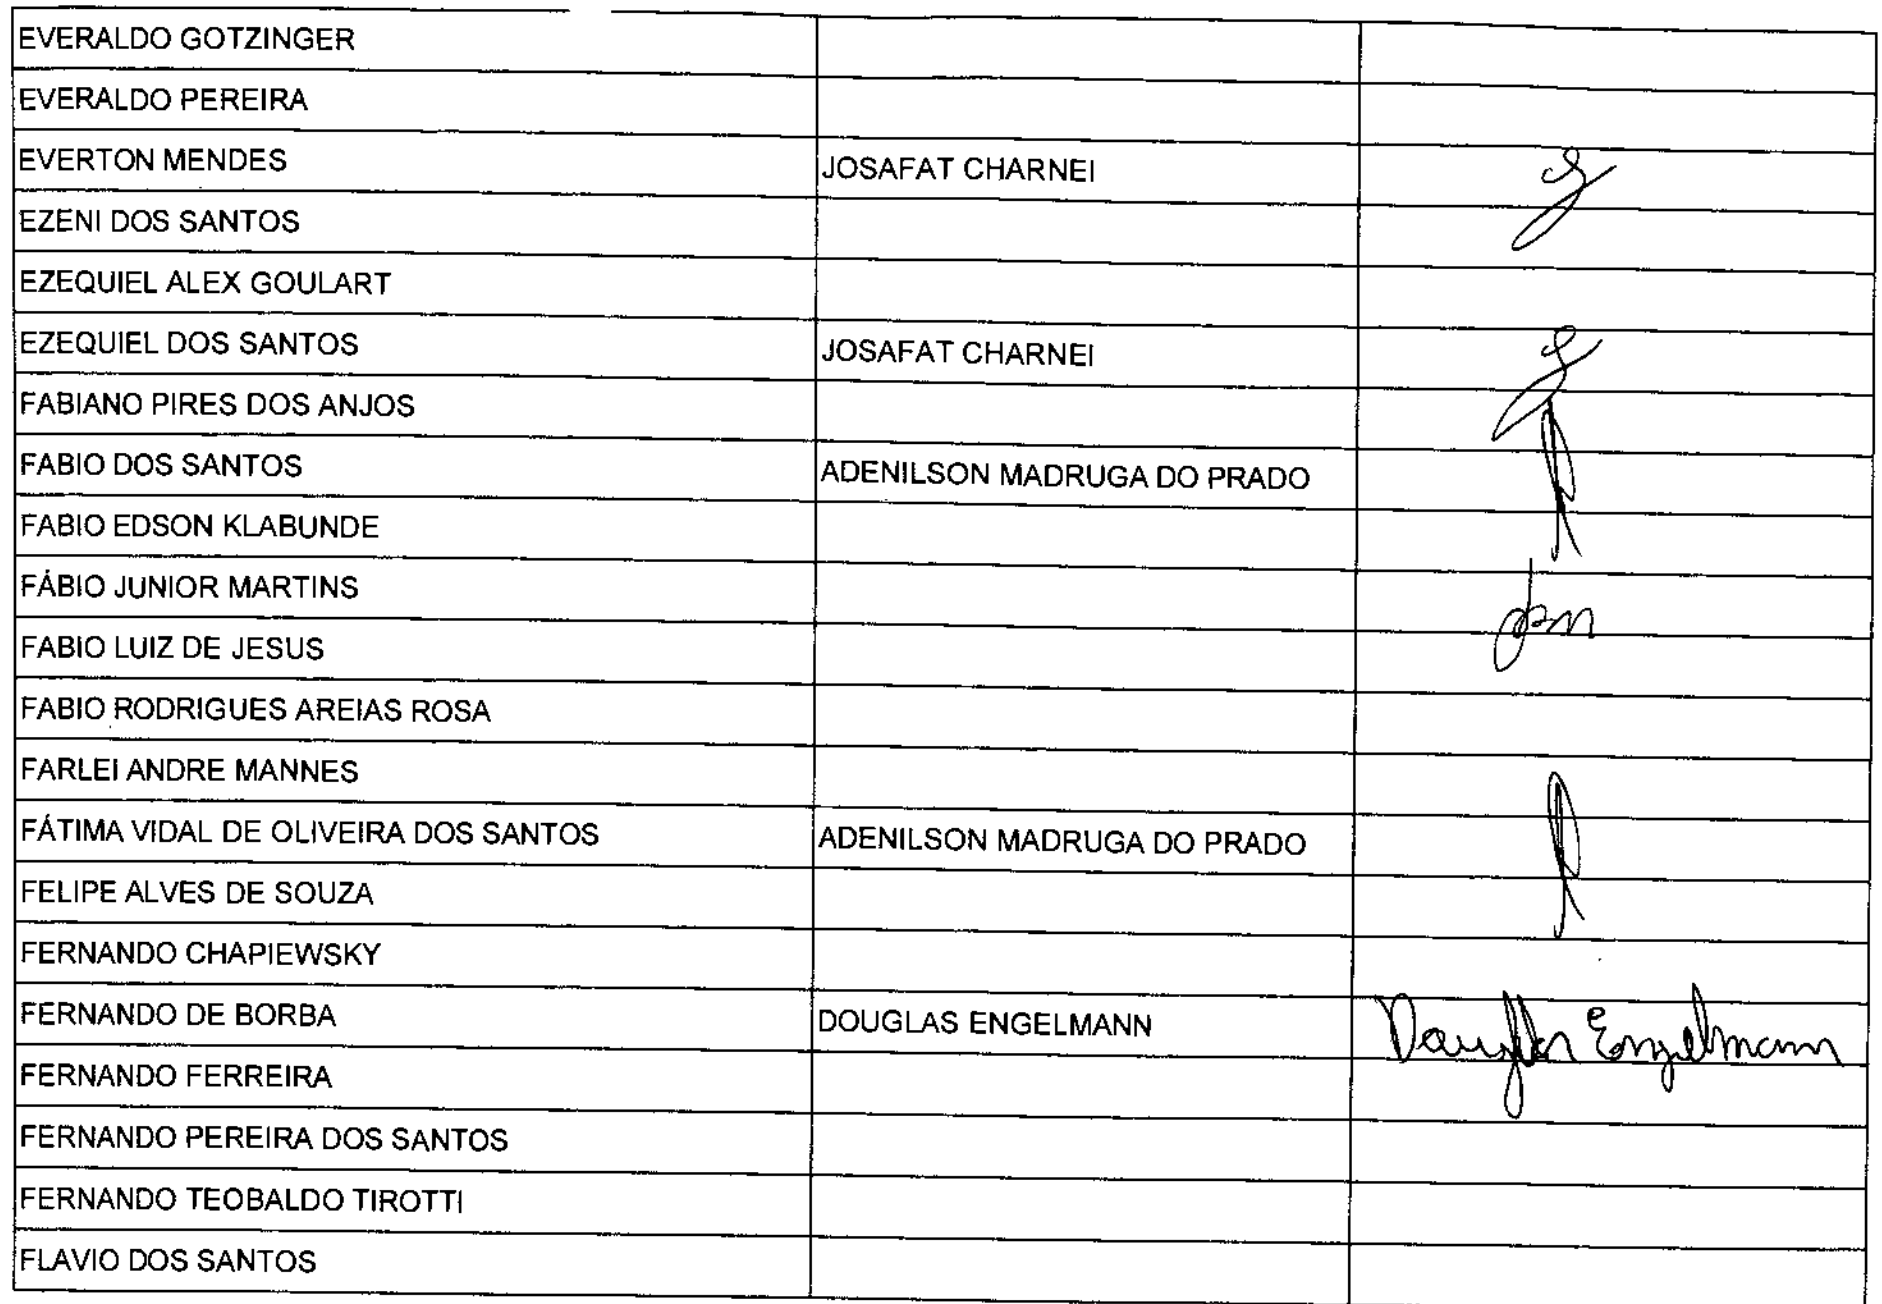 EVERALDO GOTZINGER
EVERALDO PEREIRA
EVERTON MENDES JOSAFAT CHARNEI
EZENI DOS SANTOS
EZEQUIEL ALEX GOULART
EZEQUIEL DOS SANTOS JOSAFAT CHARNEI
FABIANO PIRES DOS ANJOS
FABIO DOS SANTOS ADENILSON MADRUGA DO PRADO
FABIO EDSON KLABUNDE
FÁBIO JUNIOR MARTINS
FABIO LUIZ DE JESUS
FABIO RODRIGUES AREIAS ROSA
FARLEI ANDRE MANNES
FÁTIMA VIDAL DE OLIVEIRA DOS SANTOS ADENILSON MADRUGA DO PRADO
FELIPE ALVES DE SOUZA
FERNANDO CHAPIEWSKY
FERNANDO DE BORBA DOUGLAS ENGELMANN Douglas Engelmann
FERNANDO FERREIRA
FERNANDO PEREIRA DOS SANTOS
FERNANDO TEOBALDO TIROTTI
FLAVIO DOS SANTOS